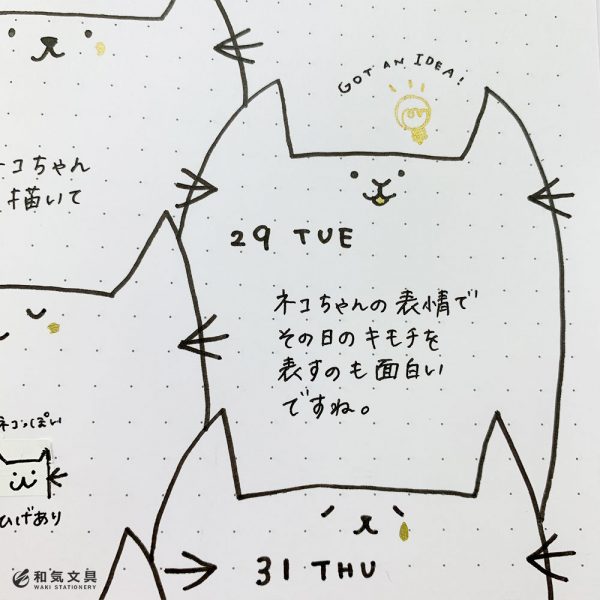 GOT AN IDEA!
ネコちゃん
描いて
29 TUE
ネコちゃんの表情で
その日のキモチを
表すのも面白い
ですね。
ネコっぽい
ひげあり
31 THU
和気文具
WAKI STATIONERY